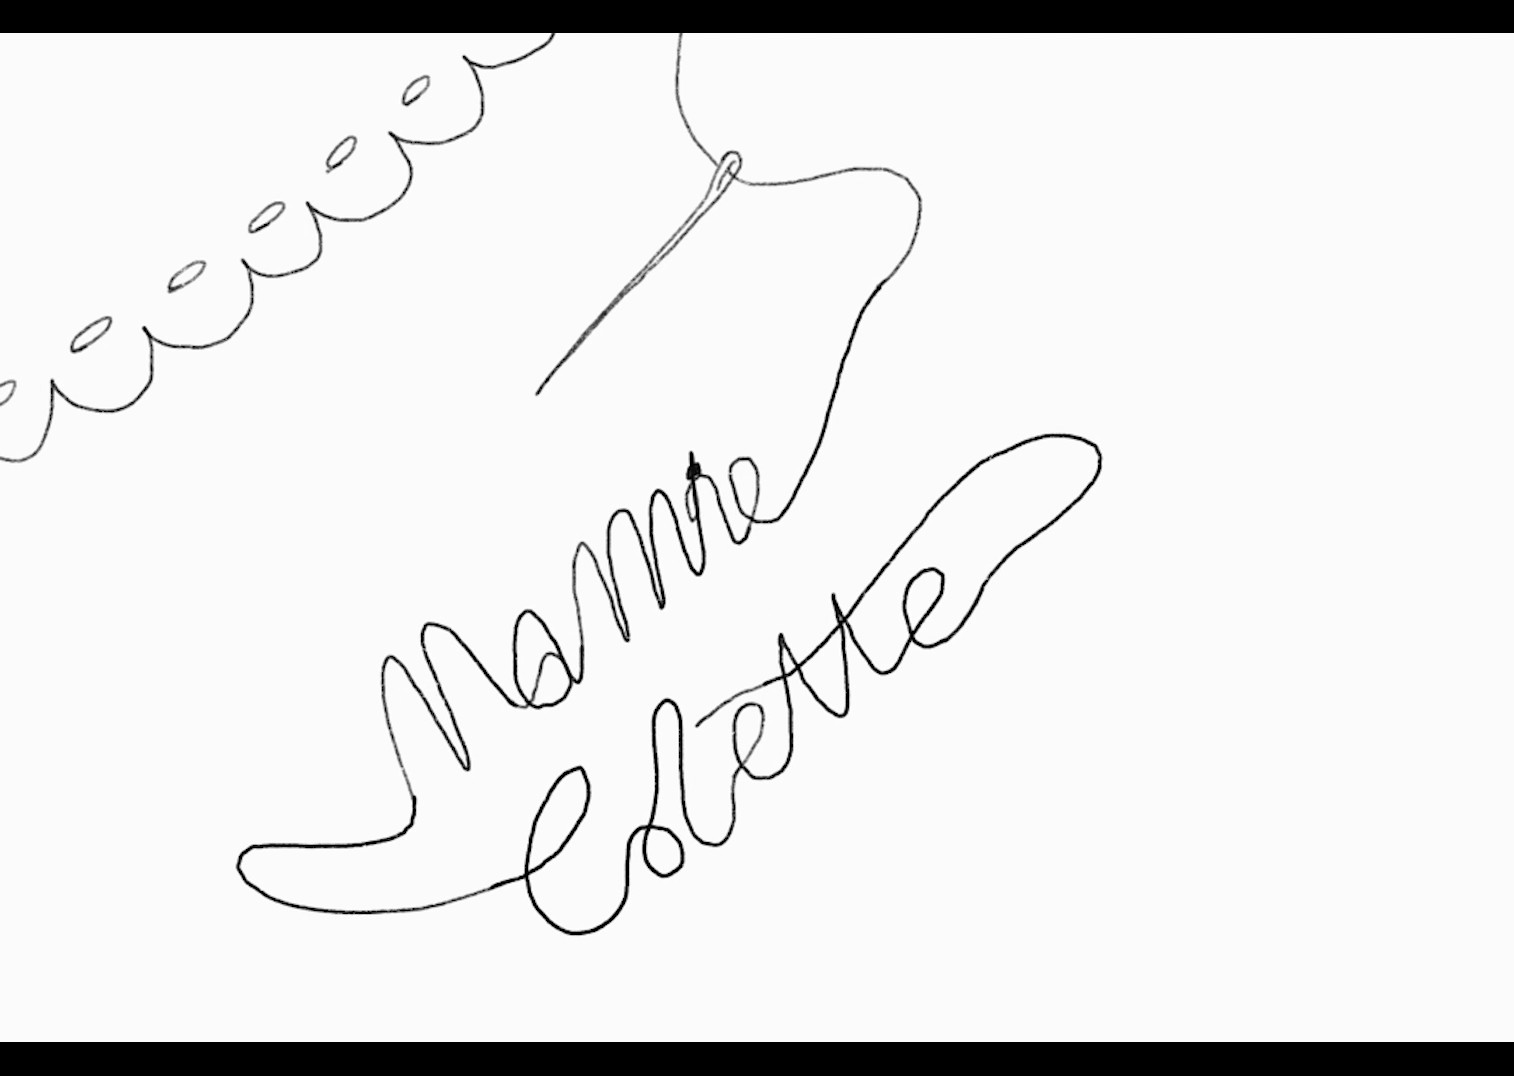 Mamie
Colette